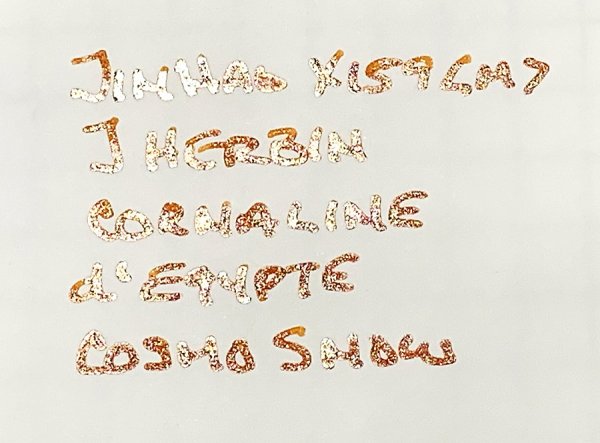 JINHAO X159 (M)
J HERBIN
CORNALINE
d'EGYPTE
COSMO SNOW